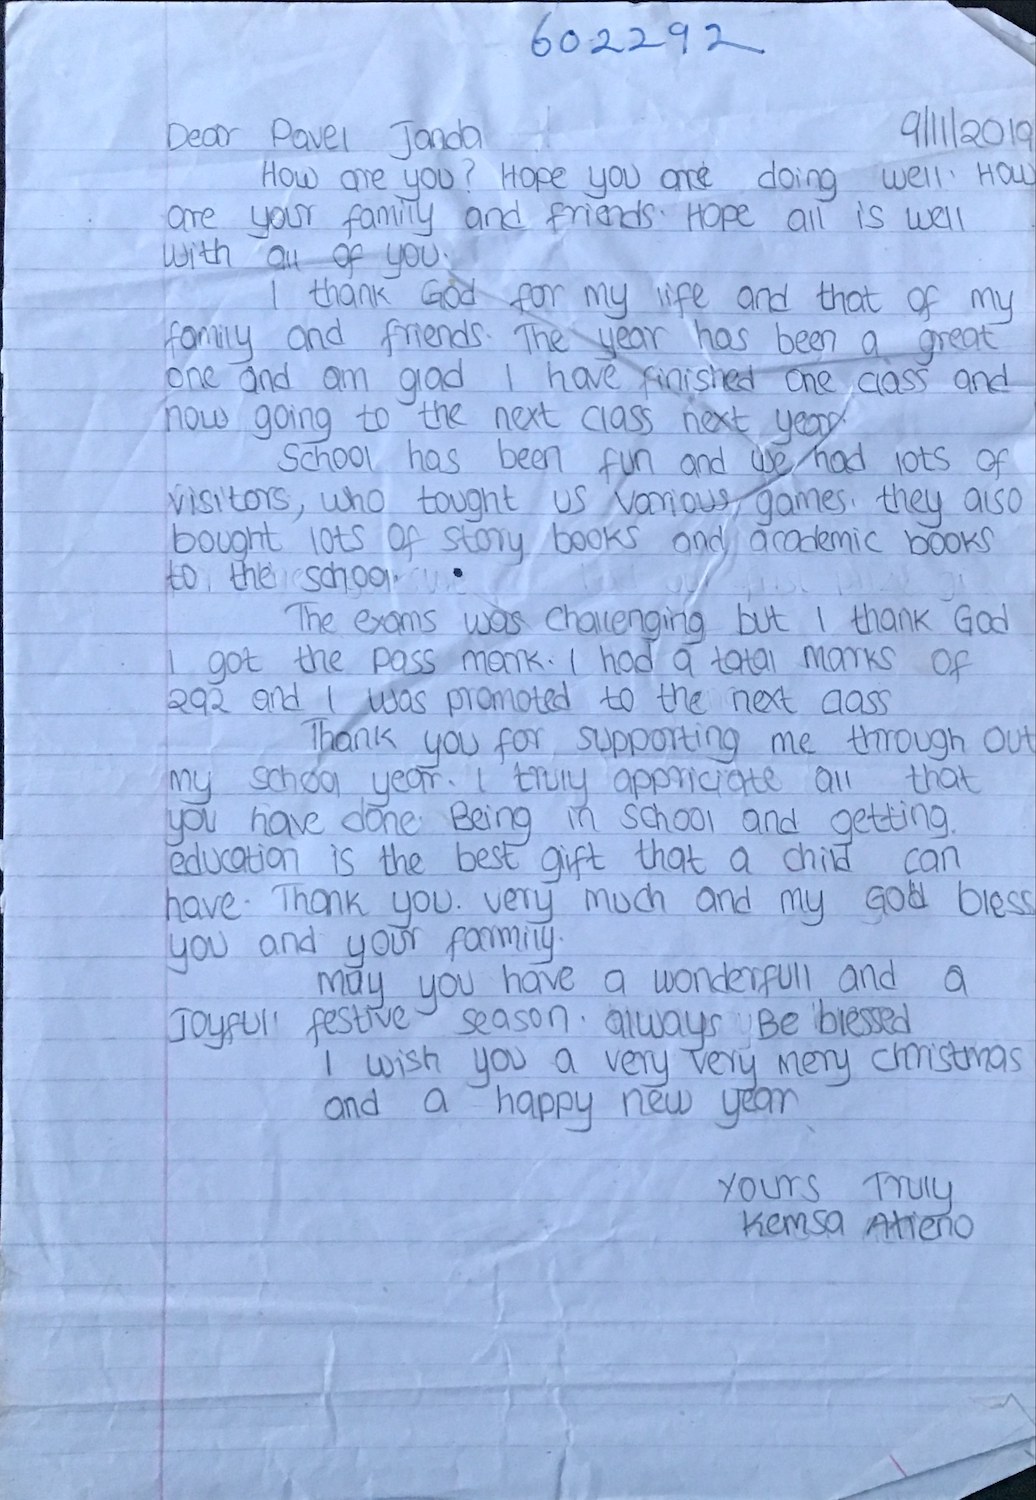 602292
Dear Pavel Janda 9/11/2019
How are you? Hope you are doing well. How
are your family and friends. Hope all is well
with all of you.
I thank God for my life and that of my
family and friends. The year has been a great
one and am glad I have finished one class and
now going to the next class next year.
School has been fun and we had lots of
visitors, who tought us various games. they also
bought lots of story books and academic books
to the school.
The exams was challenging but I thank God
I got the pass mark. I had a total marks of
292 and I was promoted to the next class
Thank you for supporting me through out
my school year. I truly appriciate all that
you have done. Being in school and getting.
education is the best gift that a child can
have. Thank you. very much and my God bless
you and your fammily.
may you have a wonderfull and a
Joyfull festive season. always Be blessed
I wish you a very very mery christmas
and a happy new year
Yours Truly
Kemsa Atieno